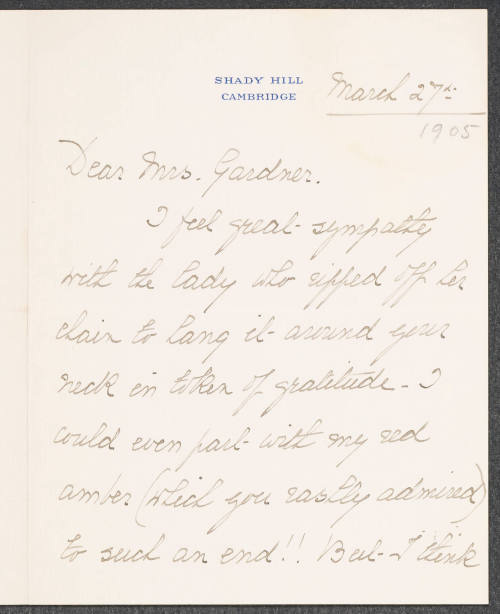 SHADY HILL
CAMBRIDGE
March 27th
1905
Dear Mrs. Gardner.
I feel great sympathy
with the lady who ripped off her
chain to hang it around your
neck in token of gratitude - I
could even part with my red
amber (which you rashly admired)
to such an end!! But I think